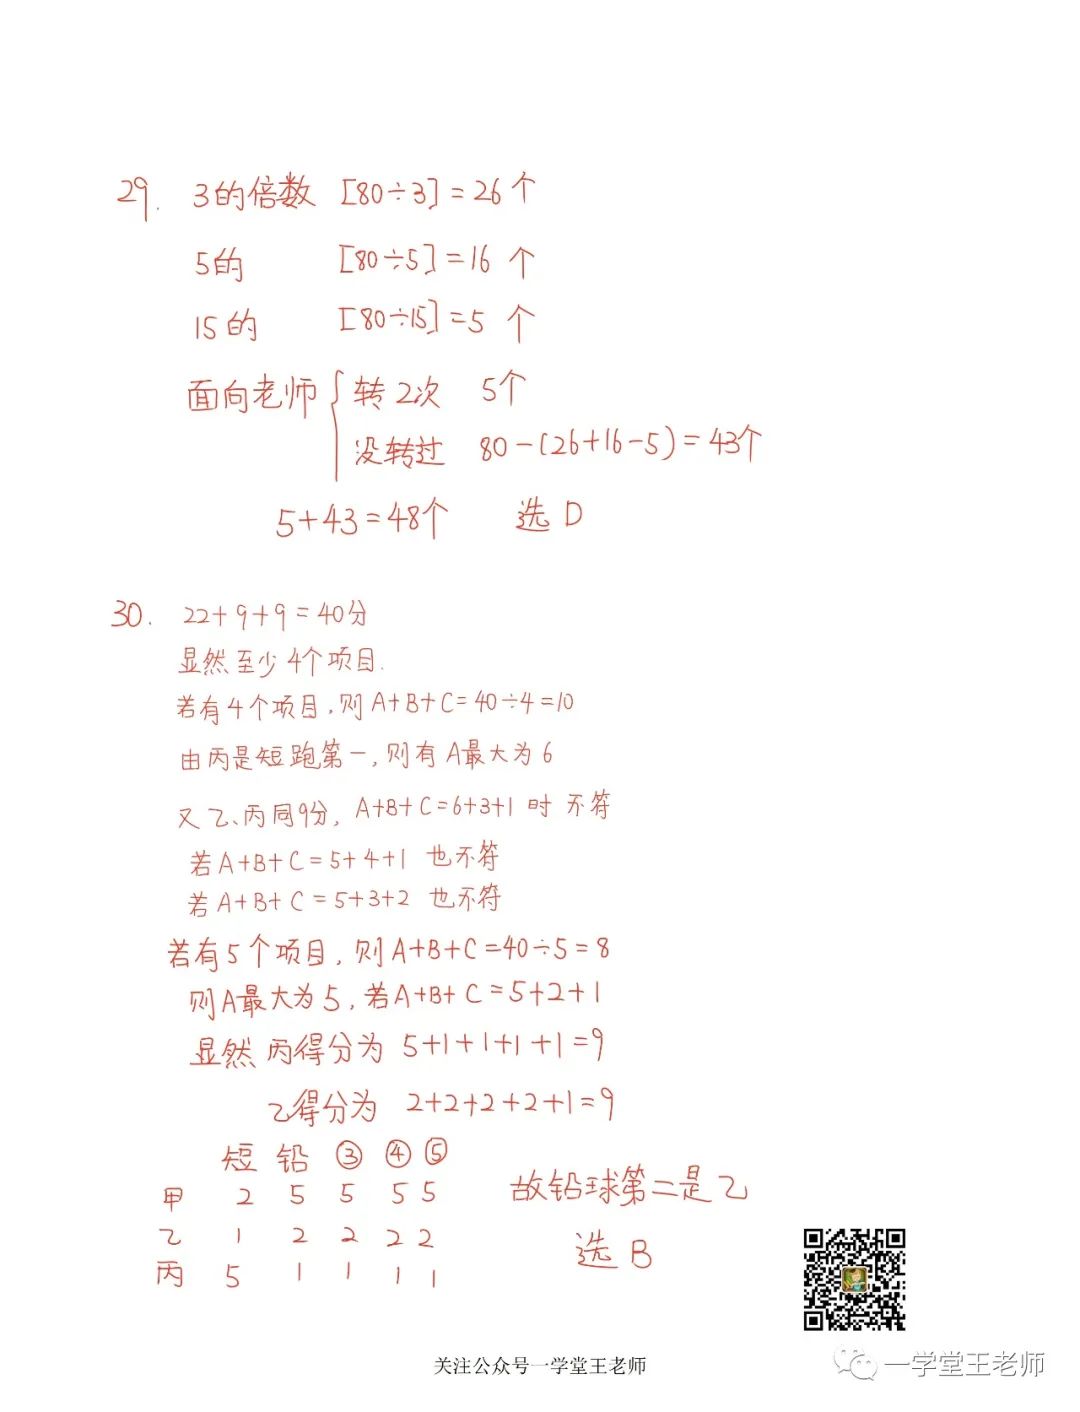 29. 3的倍数 [80÷3]=26个
5的 [80÷5]=16 个
15的 [80÷15]=5 个
面向老师 { 转2次 5个
没转过 80-(26+16-5)=43个
5+43=48个 选D
30. 22+9+9=40分
显然至少4个项目.
若有4个项目,则A+B+C=40÷4=10
由丙是短跑第一,则有A最大为6
又乙、丙同9分, A+B+C=6+3+1 时 不符
若A+B+C=5+4+1 也不符
若A+B+C=5+3+2 也不符
若有5个项目,则A+B+C=40÷5=8
则A最大为5,若A+B+C=5+2+1
显然丙得分为 5+1+1+1+1=9
乙得分为 2+2+2+2+1=9
短 铅 ③ ④ ⑤
甲 2 5 5 5 5
乙 1 2 2 2 2
丙 5 1 1 1 1
故铅球第二是乙
选B
关注公众号一学堂王老师
一学堂王老师